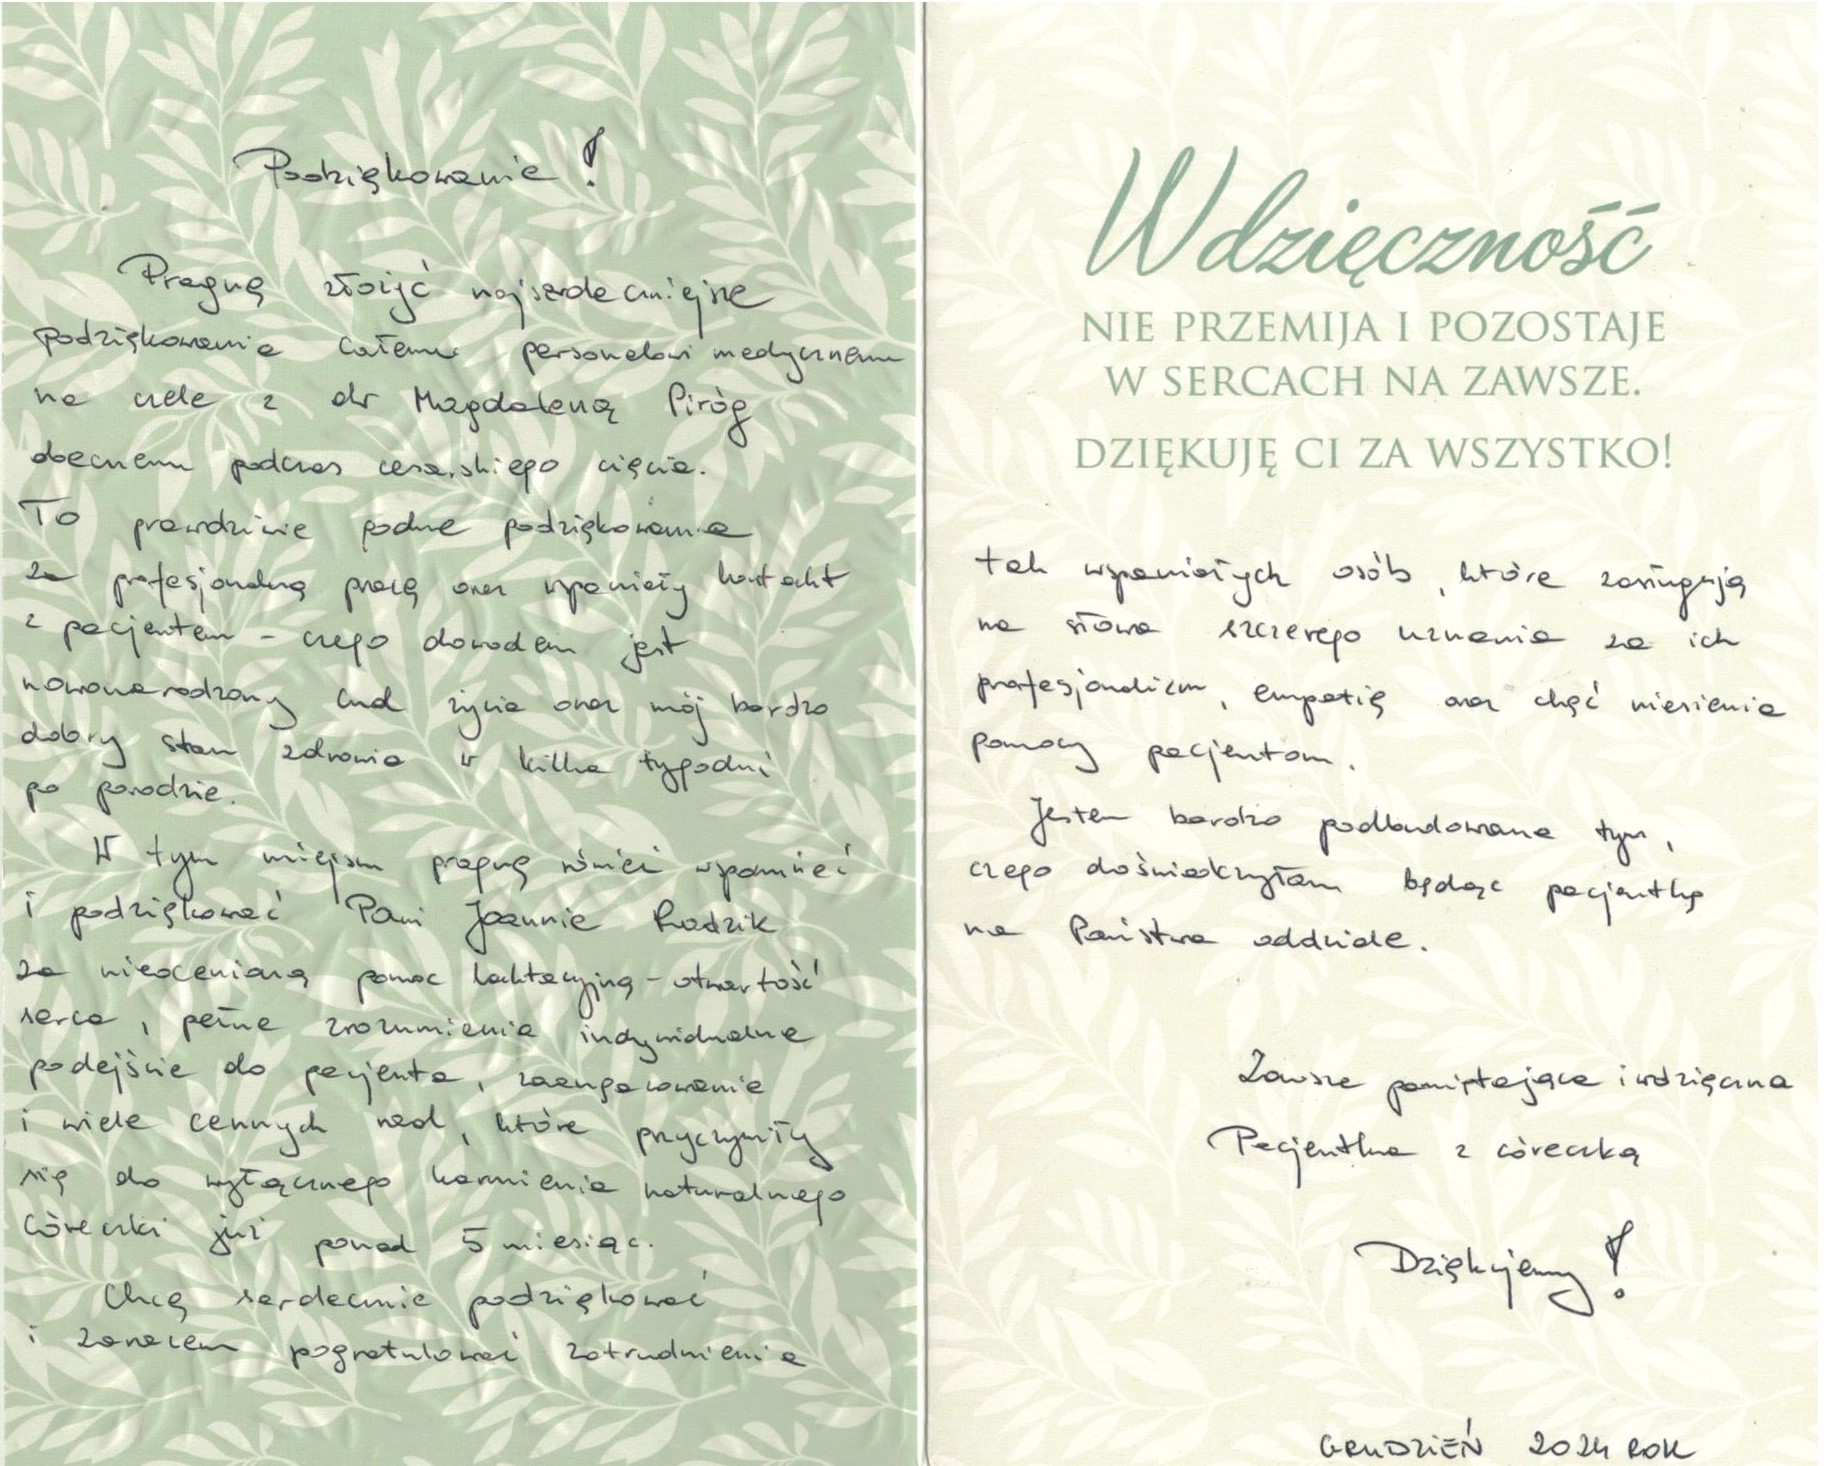 Podziękowanie!
Pragnę złożyć najserdeczniejsze
podziękowanie całemu personelowi medycznemu
na czele z dr Magdaleną Piróg
obecnemu podczas cesarskiego cięcia.
To prawdziwie podziękowania
za profesjonalną pracę oraz wspaniały kontakt
z pacjentem - czego dowodem jest
nowonarodzony cud życia oraz mój bardzo
dobry stan zdrowia w kilka tygodni
po porodzie.
W tym miejscu pragnę również wspomnieć
i podziękować Pani Joannie Rodzik
za nieocenioną pomoc laktacyjną - otwartość
serca, pełne zrozumienia indywidualne
podejście do pacjenta, zaangażowanie
i wiele cennych rad, które przyczyniły
się do wyłącznego karmienia naturalnego
córeczki już ponad 5 miesiąc.
Chcę serdecznie podziękować
i zarazem pogratulować zatrudnienia
Wdzięczność
NIE PRZEMIJA I POZOSTAJE
W SERCACH NA ZAWSZE.
DZIĘKUJĘ CI ZA WSZYSTKO!
tak wspaniałych osób, które zasługują
na słowa szczerego uznania za ich
profesjonalizm, empatię oraz chęć niesienia
pomocy pacjentom.
Jestem bardzo podbudowana tym,
czego doświadczyłam będąc pacjentką
na Państwa oddziale.
Zawsze pamiętająca i wdzięczna
Pacjentka z córeczką
Dziękujemy!
GRUDZIEŃ 2024 ROK